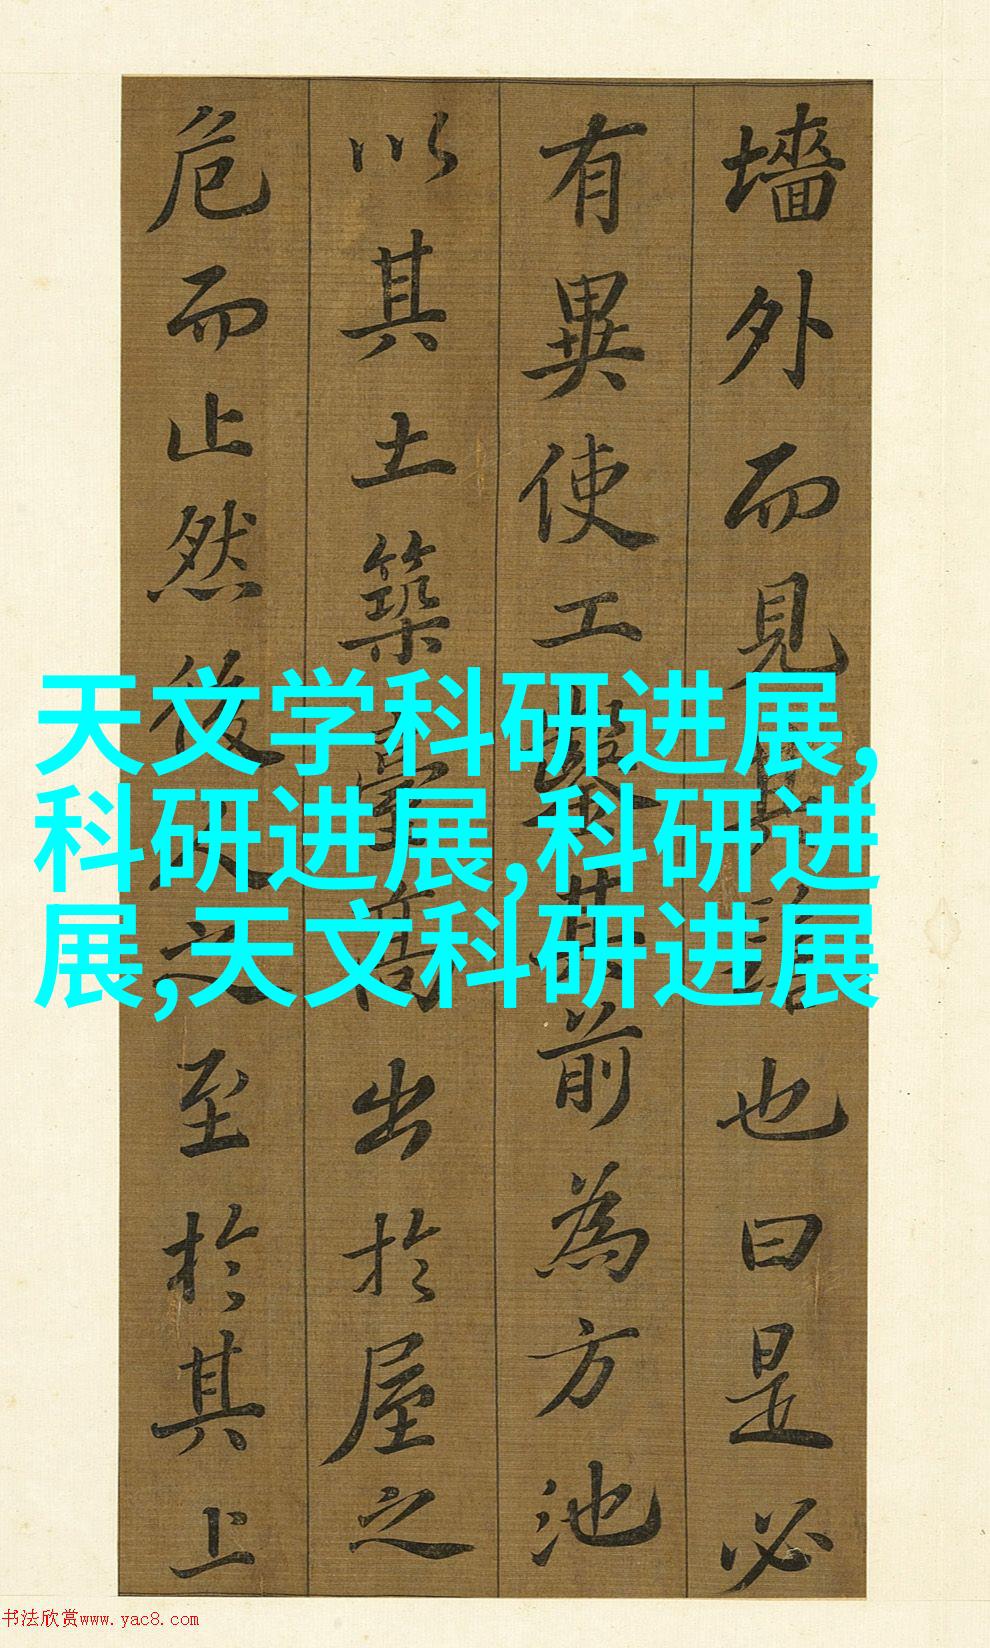 墻外而見其髻也曰是必
有異使工鑿其前為方池
以其土築臺高出於屋之
危而止然後人之至於其上
天文学科研进展,
科研进展,科研进
展,天文科研进展
书法欣赏www.yac8.com